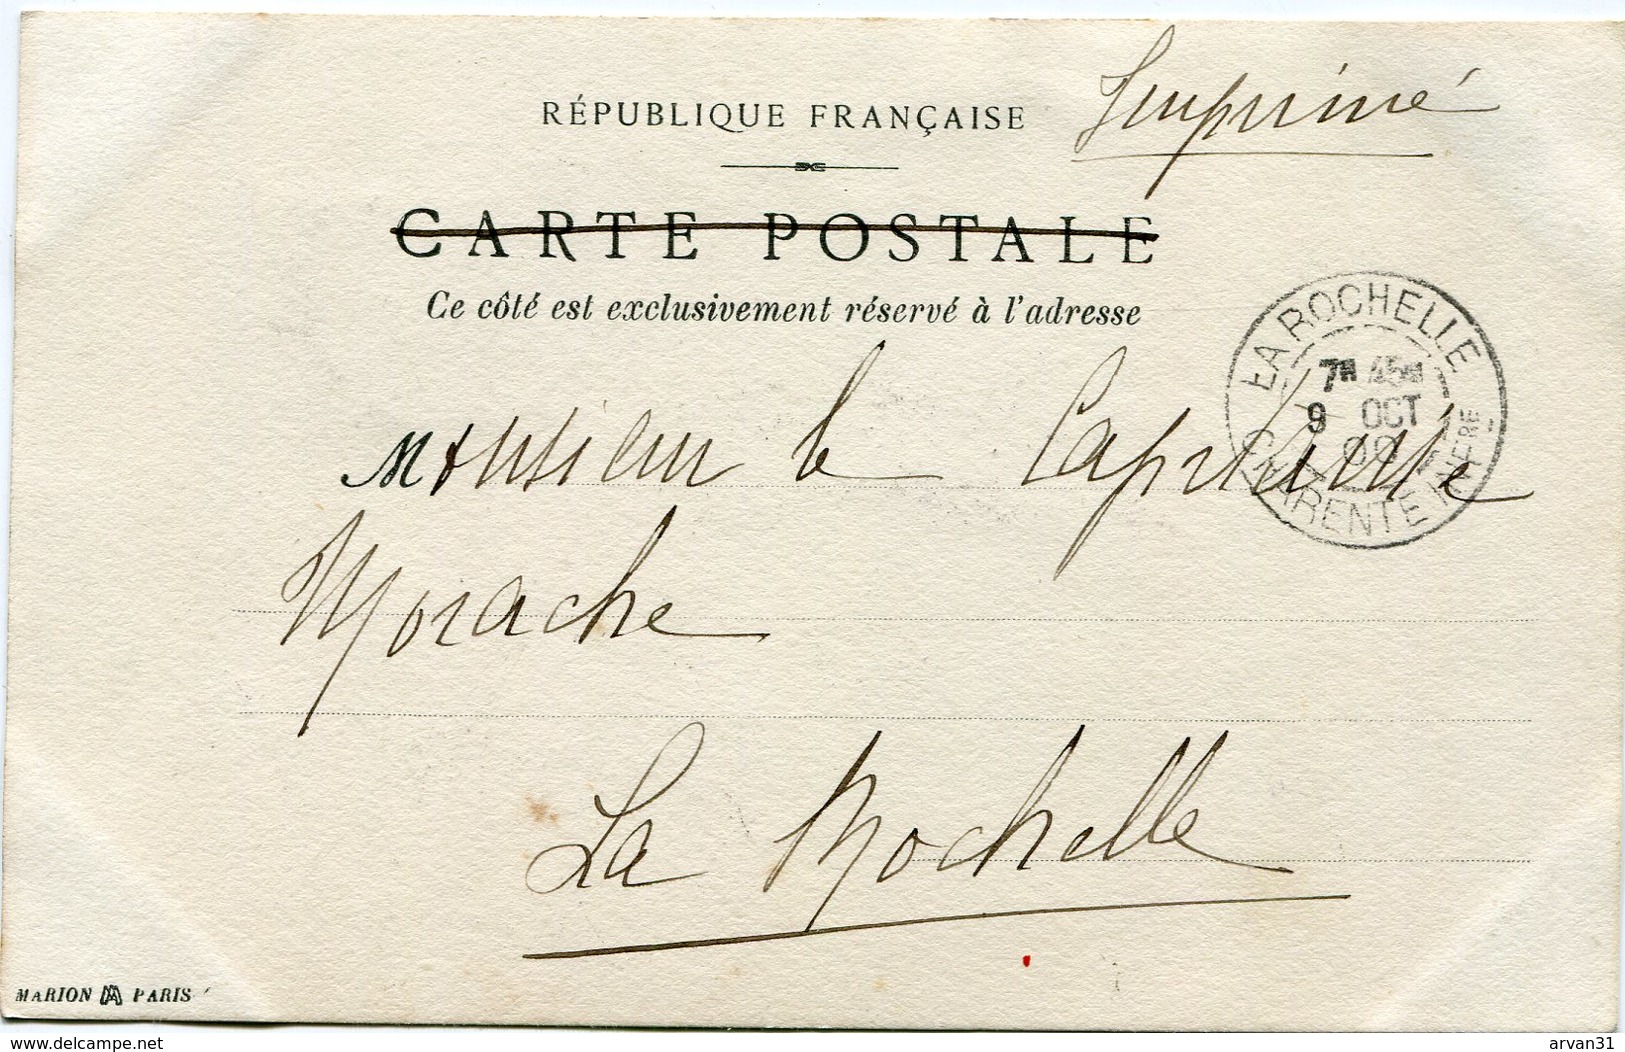 Imprimé
RÉPUBLIQUE FRANÇAISE
CARTE POSTALE
Ce côté est exclusivement réservé à l'adresse
LA ROCHELLE
7H 45
9 OCT
00
CHARENTE INFRE
Monsieur le Capitaine
Morache
La Rochelle
MARION PARIS
www.delcampe.net
arvan31